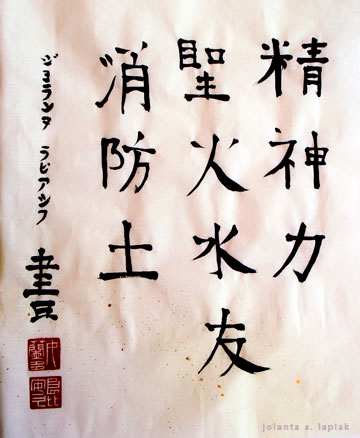 精神力
聖火水友
消防土
ジヨランタ ラピアック
jolanta a. lapiak